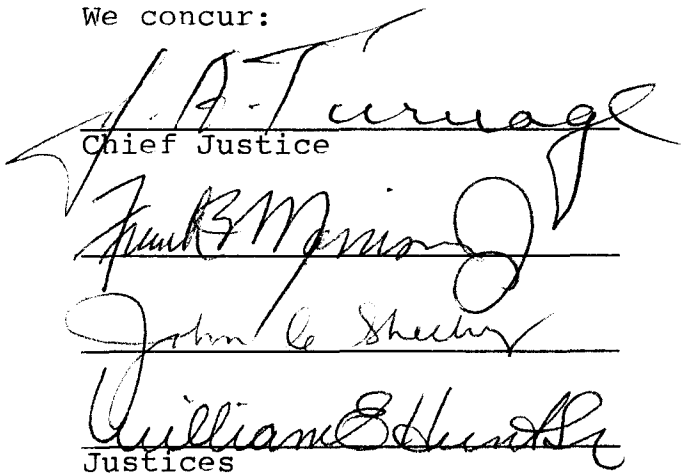 We concur:
J. A. Turnage
Chief Justice
Frank B Morrison Jr
John C Sheehy
William E Hunt Sr
Justices